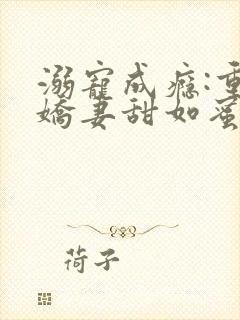 溺寵成瘾:重
嬌妻甜如蜜
荷子